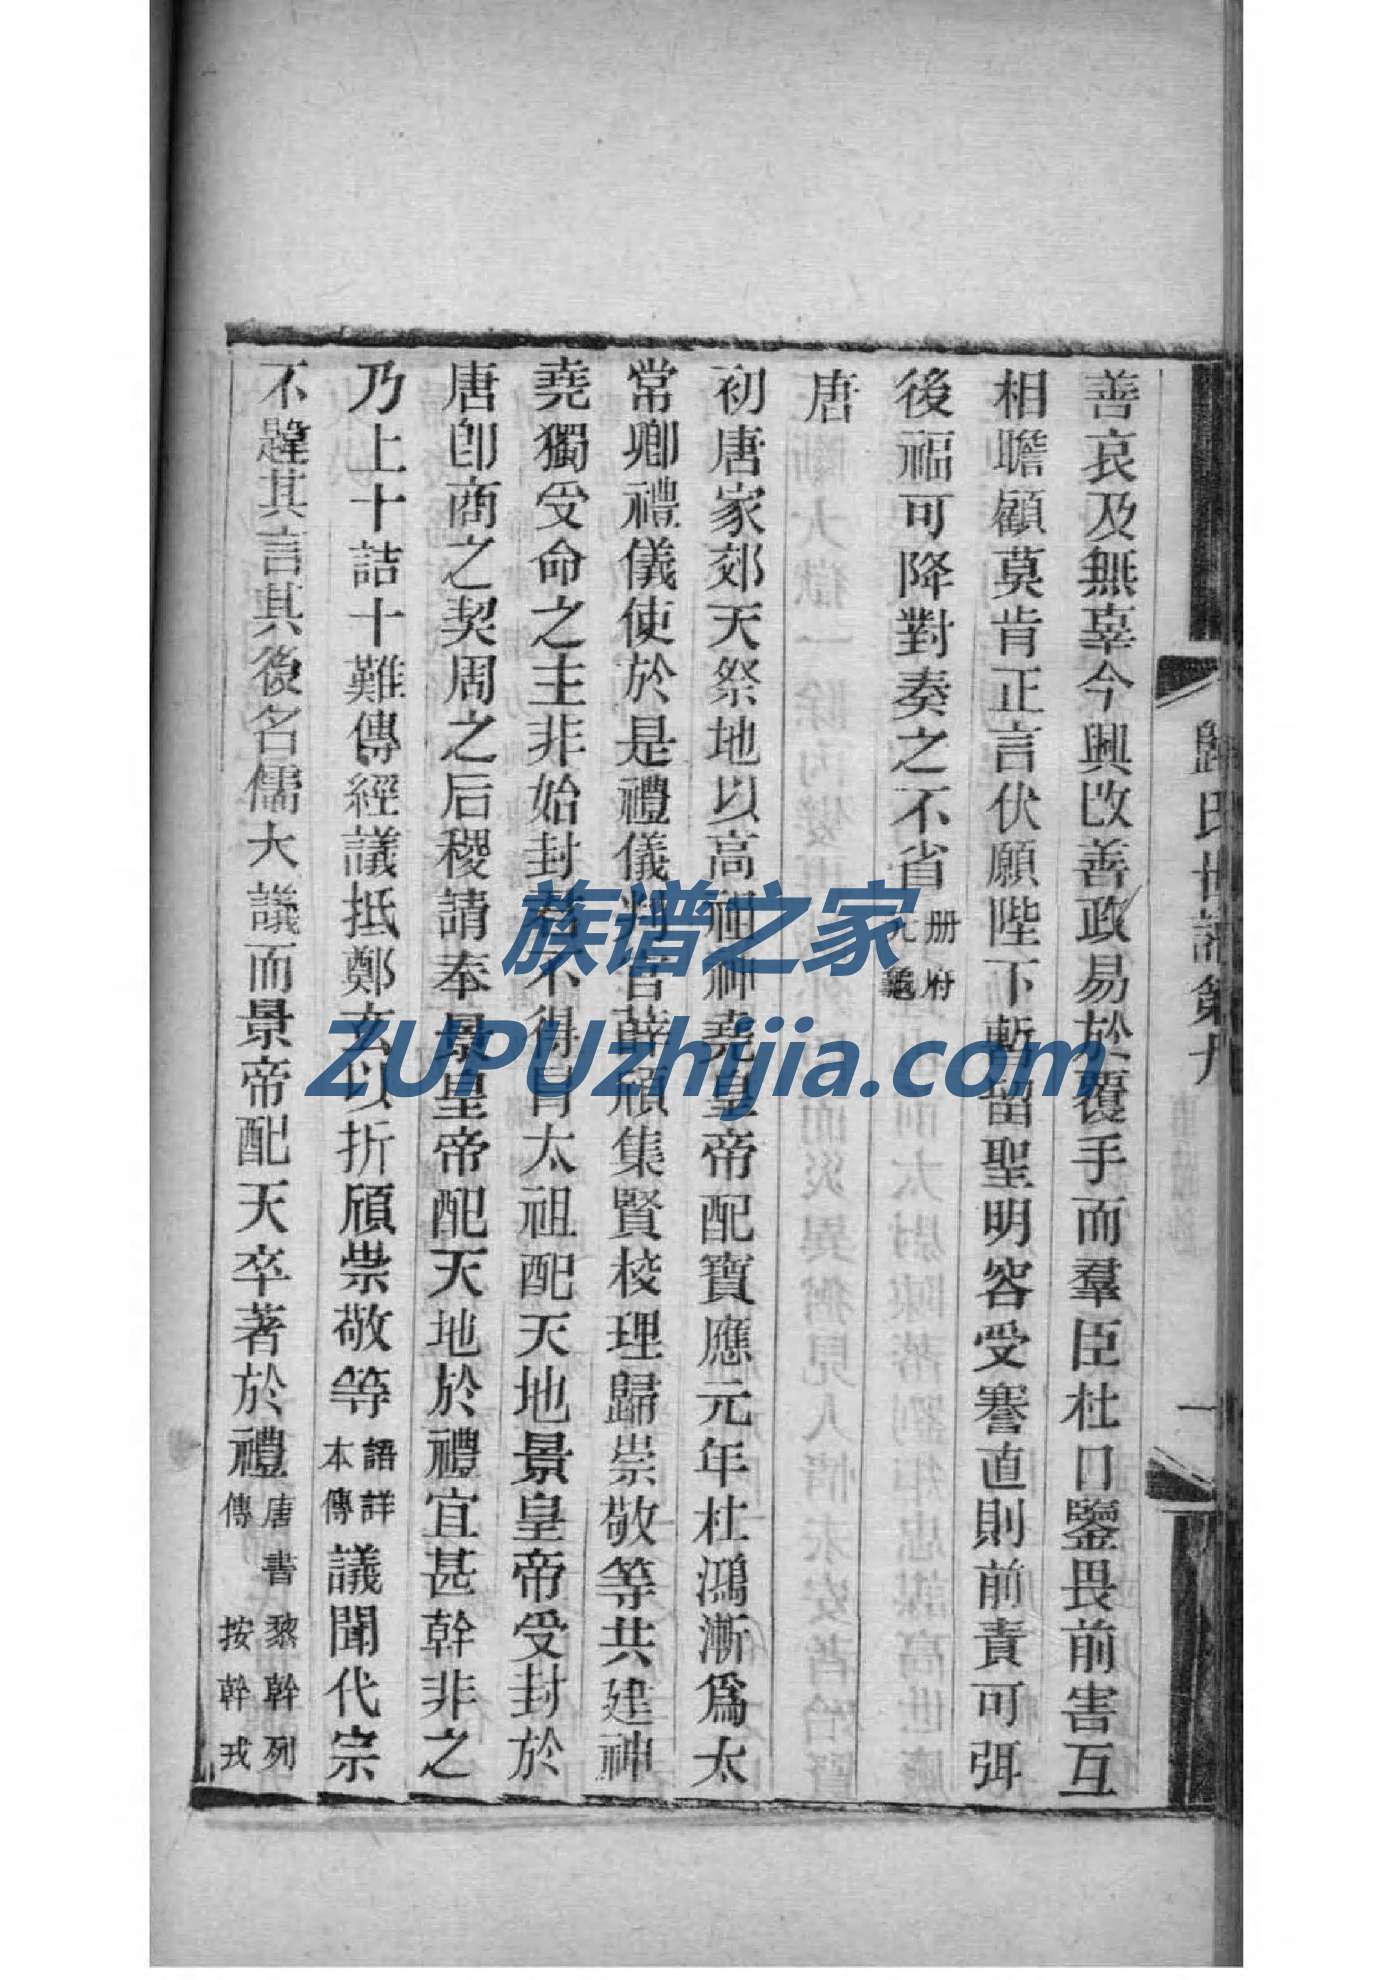 善哀及無辜今興改善政易於覆手而羣臣杜口鑒畏前害互
相瞻顧莫肯正言伏願陛下暫留聖明容受謇直則前責可弭
後福可降對奏之不省册府元龜
唐
初唐家郊天祭地以高祖神堯皇帝配寶應元年杜鴻漸爲太
常卿禮儀使於是禮儀判官薛頎集賢校理歸崇敬等共建神
堯獨受命之主非始封君不得冒太祖配天地景皇帝受封於
唐卽商之契周之后稷請奉景皇帝配天地於禮宜甚幹非之
乃上十詰十難傳經議抵鄭玄以折頎崇敬等語詳本傳議聞代宗
不韙其言其後名儒大議而景帝配天卒著於禮唐書黎幹列傳按幹戎
歸氏世譜第九
一
族谱之家
ZUPUzhijia.com